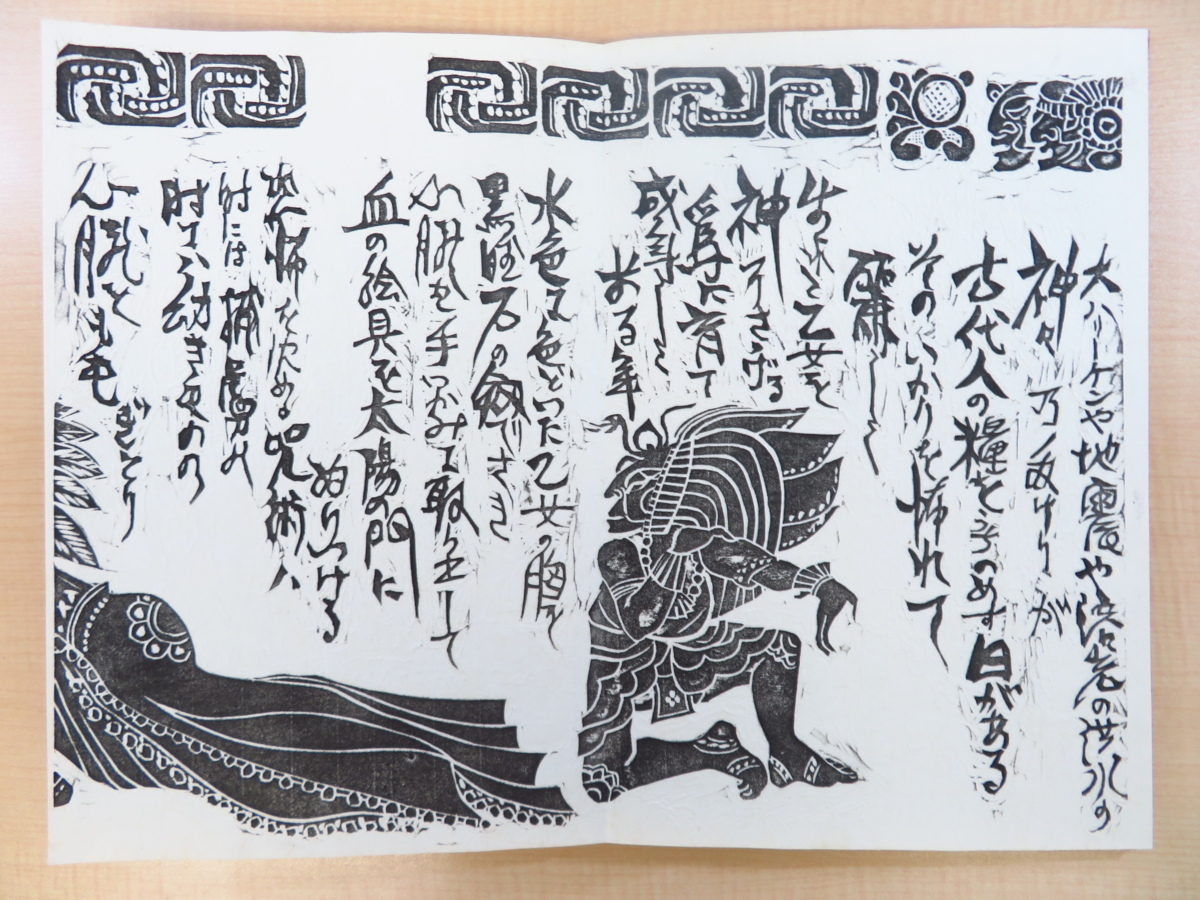 大ハリケンや地震や波光の洪水の
神々 乃 が
古代人の糧を のめす日がある
そのいかりを怖れて
麗しく
生れし乙女を
神 にささげる
為に育て
成年し
ある年
水色に色どった乙女の胸を
黒曜石の剱でさき
心臓を手づかみて取り出して
血の絵具を太陽の門に
ぬりつける
恐怖 ため。呪術ハ
時には捕虜の
時にハ幼き女の
心臓をも
ぎとり